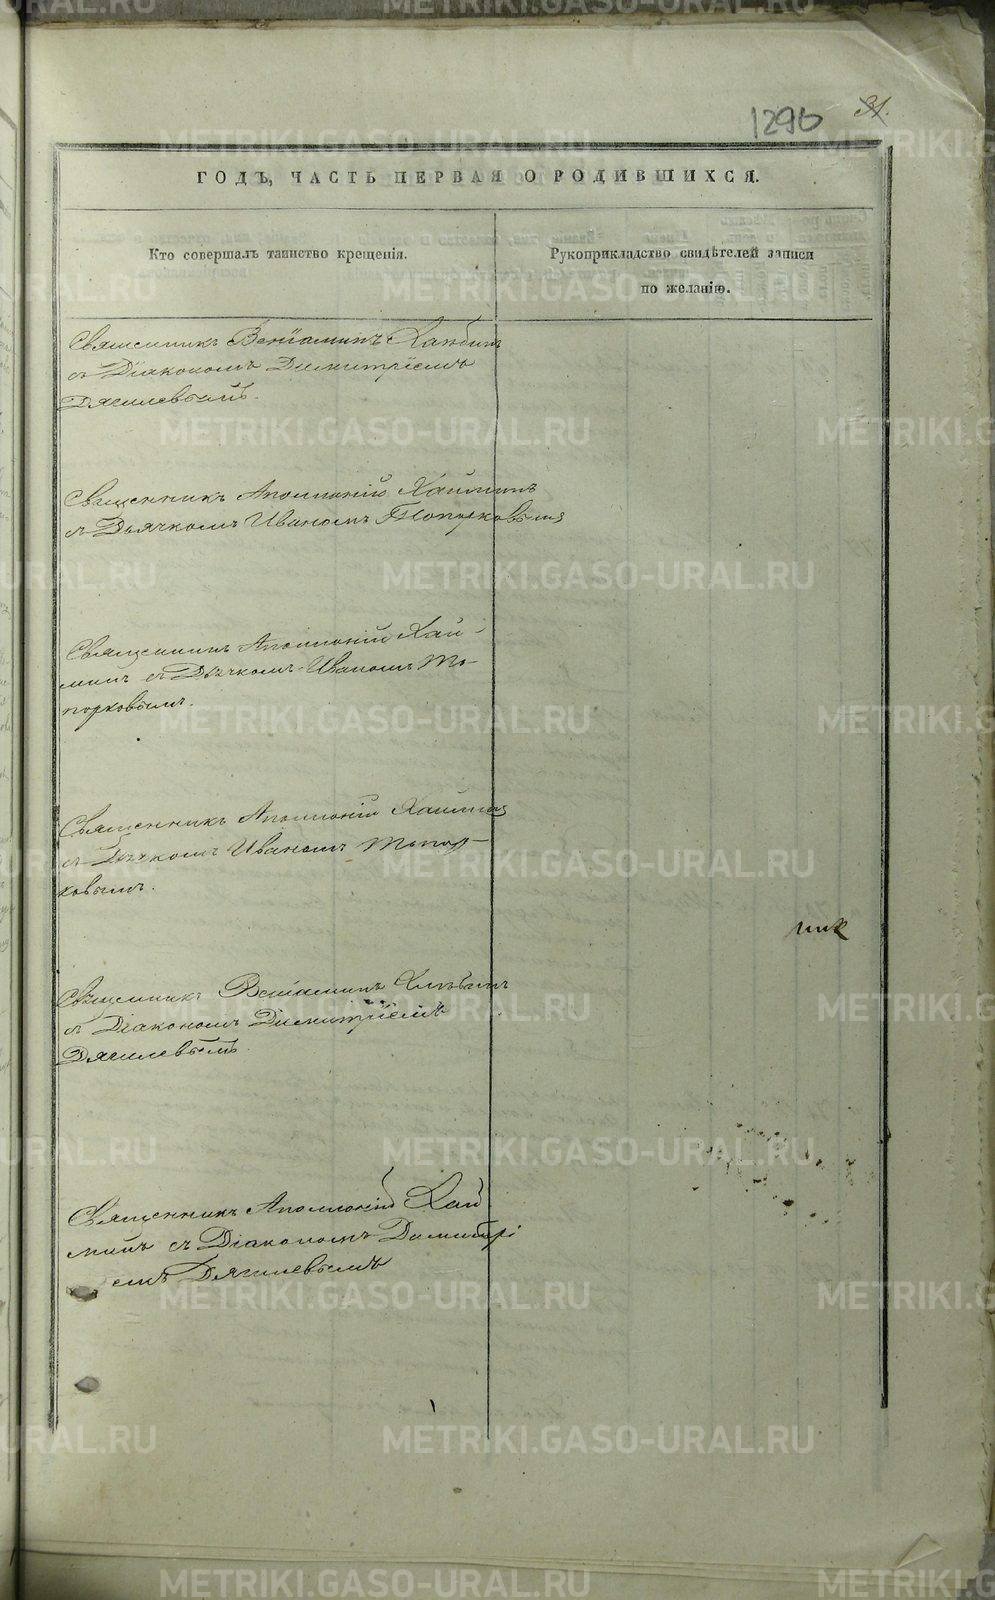 1296
31.
ГОДЪ, ЧАСТЬ ПЕРВАЯ О РОДИВШИХСЯ.
Кто совершалъ таинство крещенія.
Рукоприкладство свидѣтелей записи
по желанію.
Священникъ Веніаминъ
съ Діакономъ Димитріемъ
Дягилевымъ.
Священникъ Аполлоній Хайминъ
съ Дьячкомъ Иваномъ Топорковымъ
Священникъ Аполлоній Хай-
минъ съ Дьячкомъ Иваномъ То-
порковымъ.
Священникъ Аполлоній Хайминъ
съ Дьячкомъ Иваномъ Топор-
ковымъ.
Священникъ Веніаминъ
съ Діакономъ Димитріемъ
Дягилевымъ.
Священникъ Аполлоній Хай
минъ съ Діакономъ Димитрі
емъ Дягилевымъ
METRIKI.GASO-URAL.RU